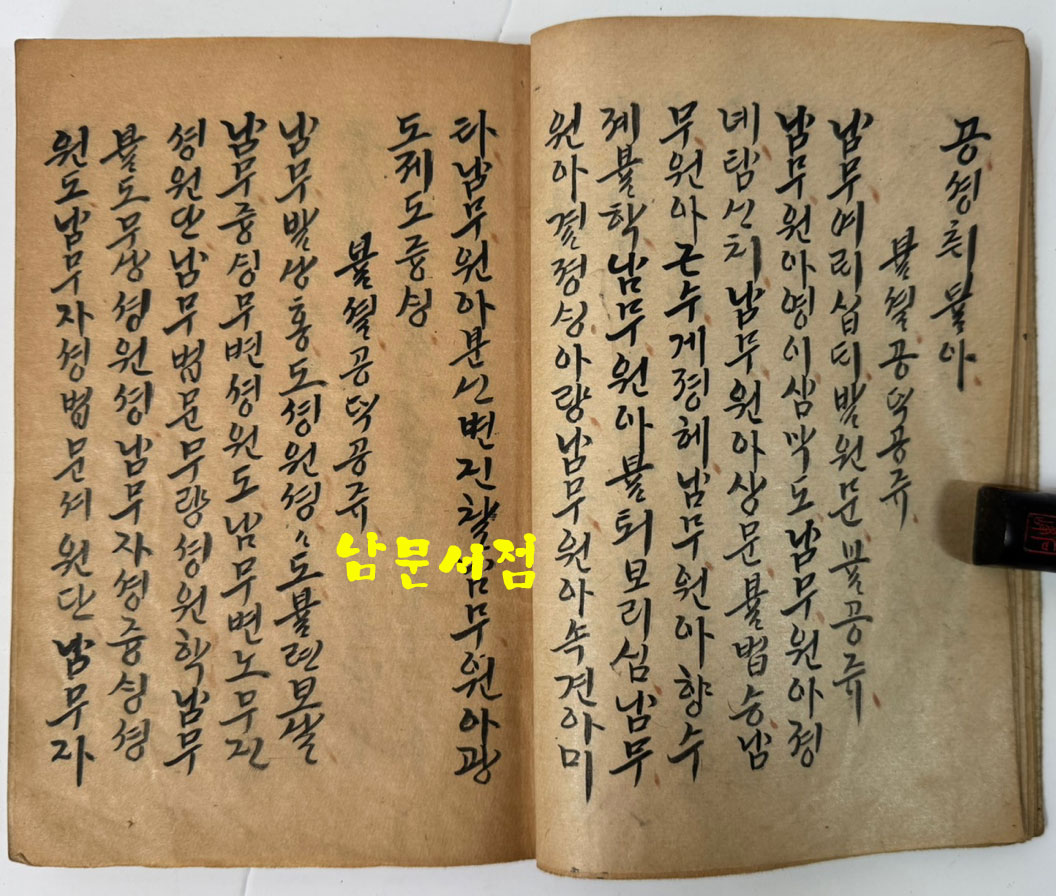 공셩취불아
불셜공덕공쥬
남무여리십듸발원문불공쥬
남무원아영이삼막도남무원아졍
녜탐신치남무원아상문불법승남
무원아근수게졍혜남무원아향수
졔불학남무원아불퇴보리심남무
원아결졍싱아량남무원아속견아미
타남무원아분신변진찰남무원아광
도제도즁싱
불셜공덕공쥬
남무발상홍도셩원셩〃도불련보살
남무즁싱무변셩원도남무변노무진
셩원단남무법문무량셩원학남무
불도무상셩원셩남무자셩즁싱셩
원도남무자셩법문셔원단남무자
남문서점